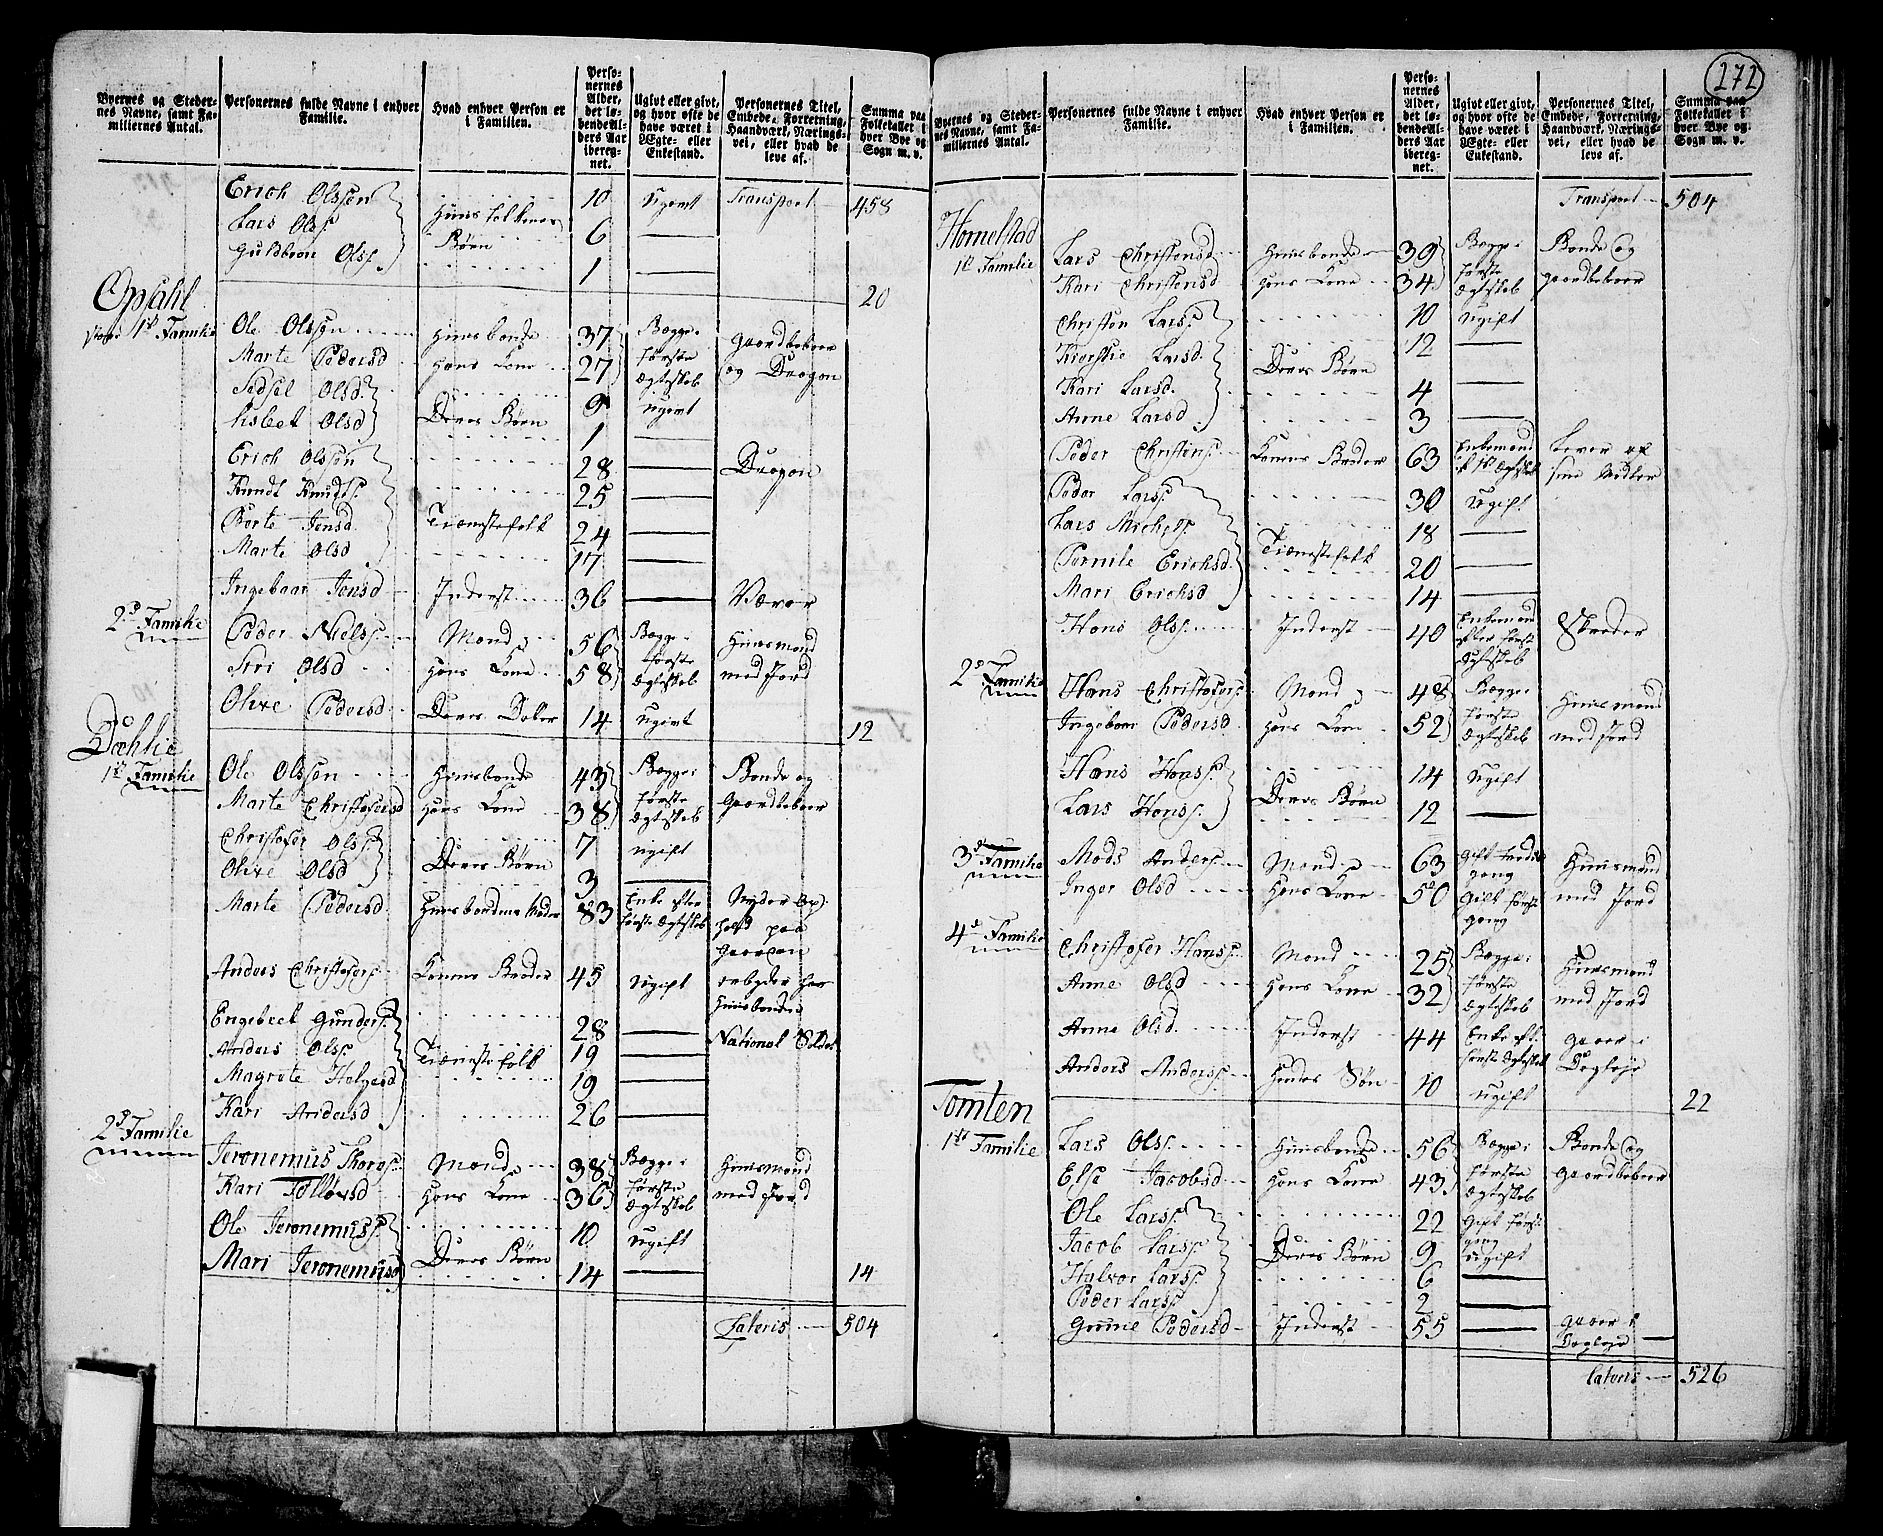 272
Byernes og Stedernes Navne, samt Familiernes Antal.
Personernes fulde Navne i enhver Familie.
Hvad enhver Person er i Familien.
Personernes Alder, det løbendeAlders Aar iberegnet.
Ugivt eller givt, og hvor ofte de have været i Ægte- eller Enkestand.
Personernes Titel, Embede, Forretning, Haandværk, Næringsvei, eller hvad de leve af.
Summa paa Folketallet i hver Bye og Sogn m. v.
Erich Olssøn 10 Ugivt Transport 458
Lars Olss. Huusfolkenes Børn 6
Guldbran Olss. 1
20
Opsahl
1te Familie Ole Olssøn Huusbonde 37 Begge i Gaardbeboer
Marte Pedersd Hans Kone 27 første Ægteskab og Dragon
Sidsel Olsd. 9 ugivt
Lisbet Olsd Deres Børn 1
Erich Olssøn 28 Dragon
Knudt Knudts. 25
Berte Jensd. Tienestefolk 24
Marte Olsd 17
Ingebaar Jensd Inderst 36 Væver
2d Familie Peder Niels. Mand 56 Begge i Huusmand
Siri Olsd Hans Kone 58 første Ægteskab med Jord
Olive Pedersd Deres Datter 14 ugivt 12
Dæhlie
1te Familie Ole Olssøn Huusbonde 43 Begge i Bonde og
Marte Christofersd Hans Kone 38 første Ægteskab Gaardbeboer
Christofer Olss. 7 ugift
Olive Olsd Deres Børn 3
Marte Pedersd Huusbondens Moder 83 Enke efter første Ægteskab Nyder Ophold paa Gaarden
Anders Christofers. Konens Broder 45 ugift arbeyder hos Huusbonden
Engebret Gunders. 28 National Soldat
Anders Ols. Tienestefolk 19
Magrete Helgesd 19
Kari Andersd 26
2d Familie Jeronemus Thores. Mand 38 Begge i Huusmand
Kari Tollevsd Hans Kone 36 første Ægteskab med Jord
Ole Jeronemuss. 10 ugift
Mari Jeronemusd Deres Børn 14 14
Lateris 504
Byernes og Stedernes Navne, samt Familiernes Antal.
Personernes fulde Navne i enhver Familie.
Hvad enhver Person er i Familien.
Personernes Alder, det løbendeAlders Aar iberegnet.
Ugivt eller givt, og hvor ofte de have været i Ægte- eller Enkestand.
Personernes Titel, Embede, Forretning, Haandværk, Næringsvei, eller hvad de leve af.
Summa paa Folketallet i hver Bye og Sogn m. v.
Transport 504
Homelstad
1te Familie Lars Christensd Huusbonde 39 Begge i Bonde og
Kari Christensd Hans Kone 34 første Ægteskab Gaardbeboer
Christen Larss. 10 ugift
Kierstie Larsd. 12
Kari Larsd. Deres Børn 4
Anne Larsd 3
Peder Christens. Konens Broder 63 Enkemand af 1te Ægteskab Lever af sine Midler
Peder Lars. 30 Ugift
Lars Michels. 18
Pernile Erichsd. Tienestefolk 20
Mari Erichsd 14
Hans Ols. Inderst 40 Enkemand efter første Ægteskab Skreder
2d Familie Hans Christofers. Mand 48 Begge i Huusmand
Ingebaar Pedersd Hans Kone 52 første Ægteskab med Jord
Hans Hans. 14 Ugift
Lars Hans. Deres Børn 12
3d Familie Mads Anders. Mand 63 gift tredie gang Huusmand
Inger Olsd Hans Kone 50 gift første gang med Jord
4d Familie Christofer Hans. Mand 25 Begge i Huusmand
Anne Olsd Hans Kone 32 første Ægteskab med Jord
Anne Olsd. Inderst 44 Enke eft. første Ægteskab gaaer i Dagleje
Anders Anders. Hendes Søn 10 ugift 22
Tomten
1te Familie Lars Ols. Huusbonde 56 Begge i Bonde og
Else Jacobsd Hans Kone 43 første Ægteskab Gaardbeboer
Ole Lars. 22 gift første gang
Jacob Lars. Deres Børn 9 ugift
Halvor Lars. 6
Peder Lars. 2
Gunne Pedersd Inderst 55 gaaer i Dagleje
Lateris 526